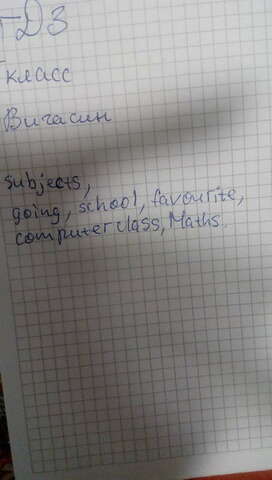 ГДЗ
класс
Вигасин
subjects,
going, school, favourite,
computer class, Maths